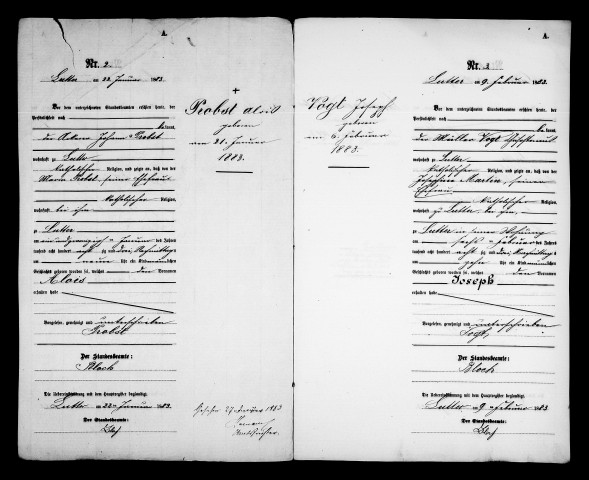 A.
Nr. 2
Lutter am 22. Januar 1883.
Vor dem unterzeichneten Standesbeamten erschien heute, der
Persönlichkeit nach
kannt,
der Johann Probst
wohnhaft zu Lutter
katholischer Religion, und zeigte an, daß von der
Maria Probst seiner Ehefrau
katholischer Religion,
wohnhaft bei ihm
zu Lutter
am ein und zwanzigsten Januar des Jahres
tausend acht hundert achtzig und drei, Nachmittags
um neun Uhr ein Kind männlichen
Geschlechts geboren worden sei, welches den Vornamen
Alois
erhalten habe
Vorgelesen, genehmigt und unterschrieben
Probst
Der Standesbeamte:
Bloch
Die Uebereinstimmung mit dem Hauptregister beglaubigt
Lutter am 22. Januar 1883.
Der Standesbeamte:
Bloch
+
Probst Alois
geboren
am 21. Januar
1883.
1883
Vogt Joseph
geboren
am 6. Februar
1883.
A.
Nr. 3
Lutter am 9. Februar 1883.
Vor dem unterzeichneten Standesbeamten erschien heute, der
Persönlichkeit nach
kannt,
der Müller Vogt
wohnhaft zu Lutter
katholischer Religion, und zeigte an, daß von der
Josephine Martin, seiner
Ehefrau
katholischer Religion,
wohnhaft zu Lutter bei ihm,
zu Lutter in seiner Wohnung
am sechsten Februar des Jahres
tausend acht hundert achtzig und drei, Nachmittags
um zehn Uhr ein Kind männlichen
Geschlechts geboren worden sei, welches den Vornamen
Joseph
erhalten habe
Vorgelesen, genehmigt und unterschrieben
Vogt,
Der Standesbeamte:
Bloch
Die Uebereinstimmung mit dem Hauptregister beglaubigt
Lutter am 9. Februar 1883.
Der Standesbeamte:
Bloch